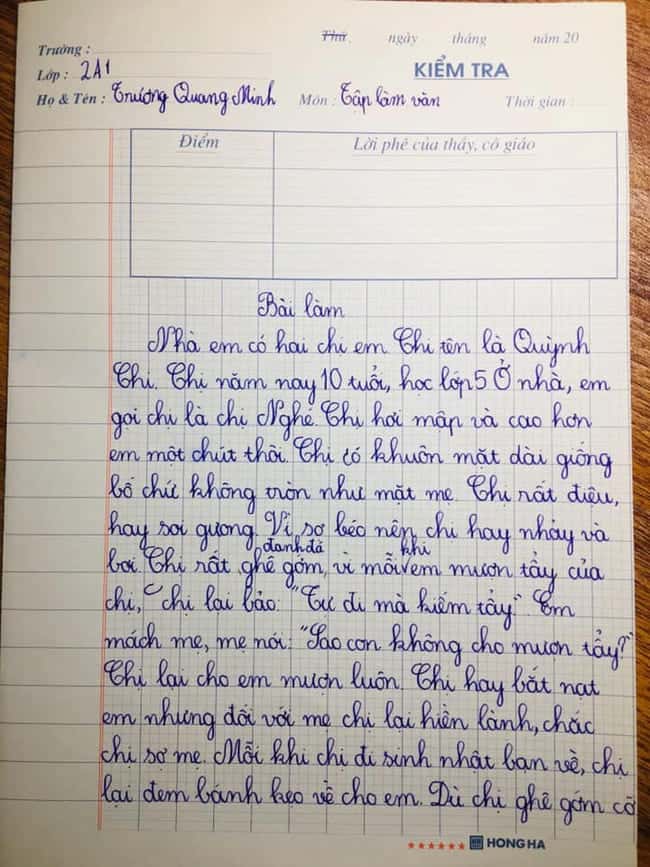 Thứ ngày tháng năm 20
Trường :
Lớp : 2A1
KIỂM TRA
Họ & Tên : Trương Quang Minh Môn : Tập làm văn Thời gian :
Điểm Lời phê của thầy, cô giáo
Bài làm
Nhà em có hai chị em. Chị tên là Quỳnh
Chi. Chị năm nay 10 tuổi, học lớp 5. Ở nhà, em
gọi chị là chị Nghé. Chị hơi mập và cao hơn
em một chút thôi. Chị có khuôn mặt dài giống
bố chứ không tròn như mặt mẹ. Chị rất điệu,
hay soi gương. Vì sợ béo nên chị hay nhảy và
đanh đá khi
bơi. Chị rất ghê gớm, vì mỗi em mượn tẩy của
chị, chị lại bảo: "Tự đi mà kiếm tẩy". Em
mách mẹ, mẹ nói: "Sao con không cho mượn tẩy?"
Chị lại cho em mượn luôn. Chị hay bắt nạt
em nhưng đối với mẹ chị lại hiền lành, chắc
chị sợ mẹ. Mỗi khi chị đi sinh nhật bạn về, chị
lại đem bánh kẹo về cho em. Dù chị ghê gớm cỡ
HONG HA